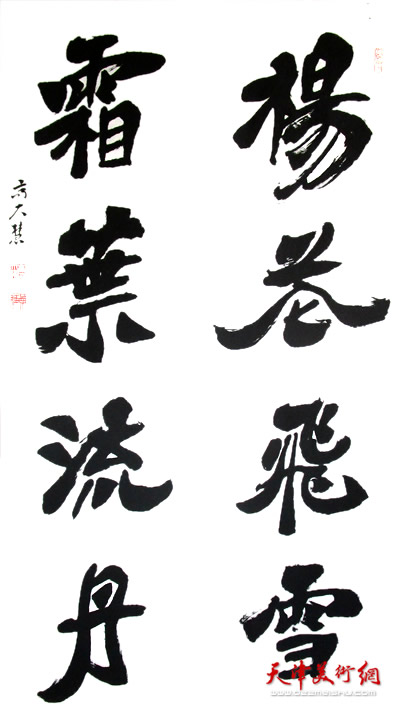 楊花飛雪
霜葉流丹
天津美術網